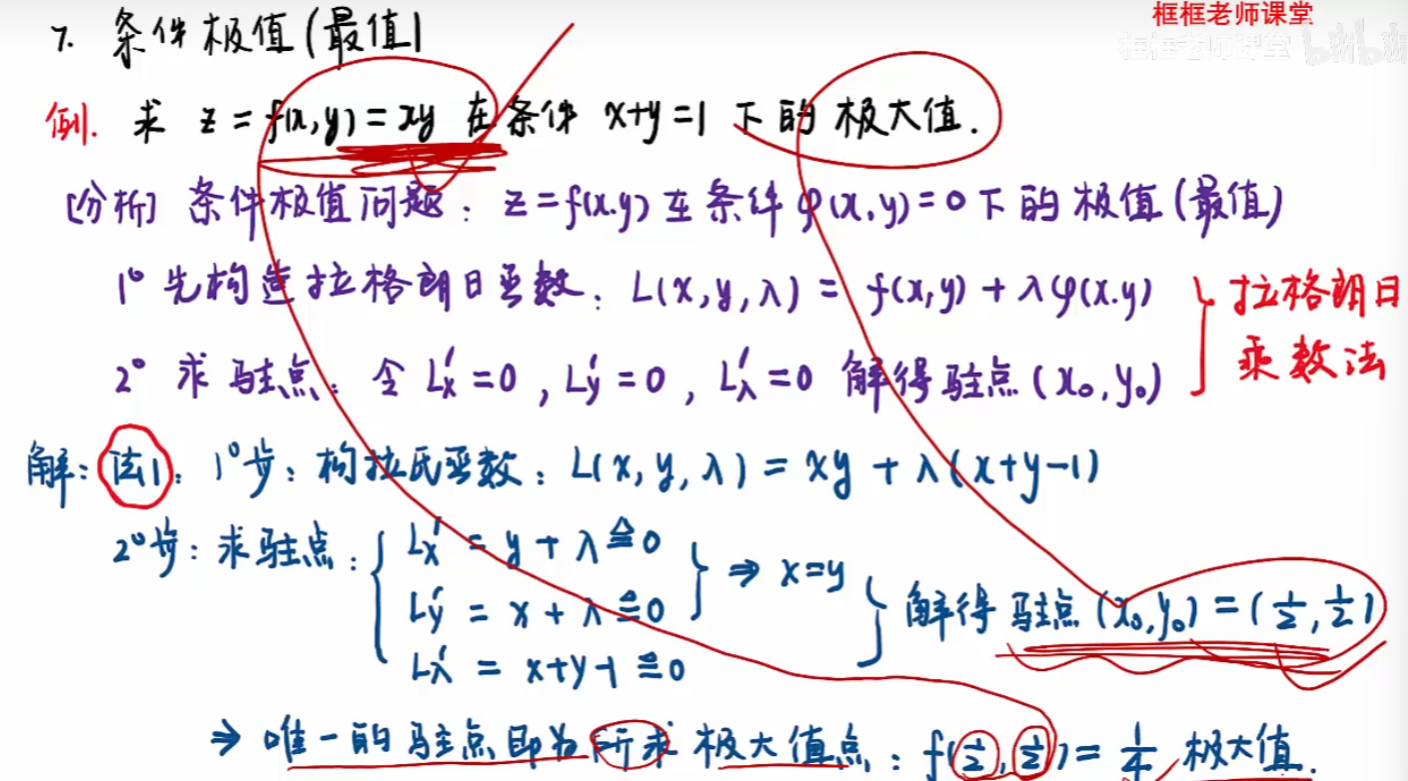 框框老师课堂
框框老师课堂 bilibili
7. 条件极值(最值)
例. 求 z = f(x,y) = xy 在条件 x+y=1 下的 极大值.
[分析] 条件极值问题: z=f(x.y)在条件 φ(x,y)=0下的极值(最值)
1° 先构造拉格朗日函数: L(x,y,λ) = f(x,y) + λφ(x.y)
拉格朗日
2° 求驻点: 令 Lx′=0, Ly′=0, Lλ′=0 解得驻点(x₀,y₀)
乘数法
解: 法1: 1°步: 构拉氏函数: L(x,y,λ) = xy + λ(x+y-1)
2°步: 求驻点: { Lx′ = y + λ ≜ 0
Ly′ = x + λ ≜ 0 } ⇒ x=y
Lλ′ = x+y-1 ≜ 0
} 解得 驻点(x₀,y₀) = (1/2,1/2)
⇒ 唯一的驻点即为所求 极大值点: f(1/2,1/2) = 1/4 极大值.